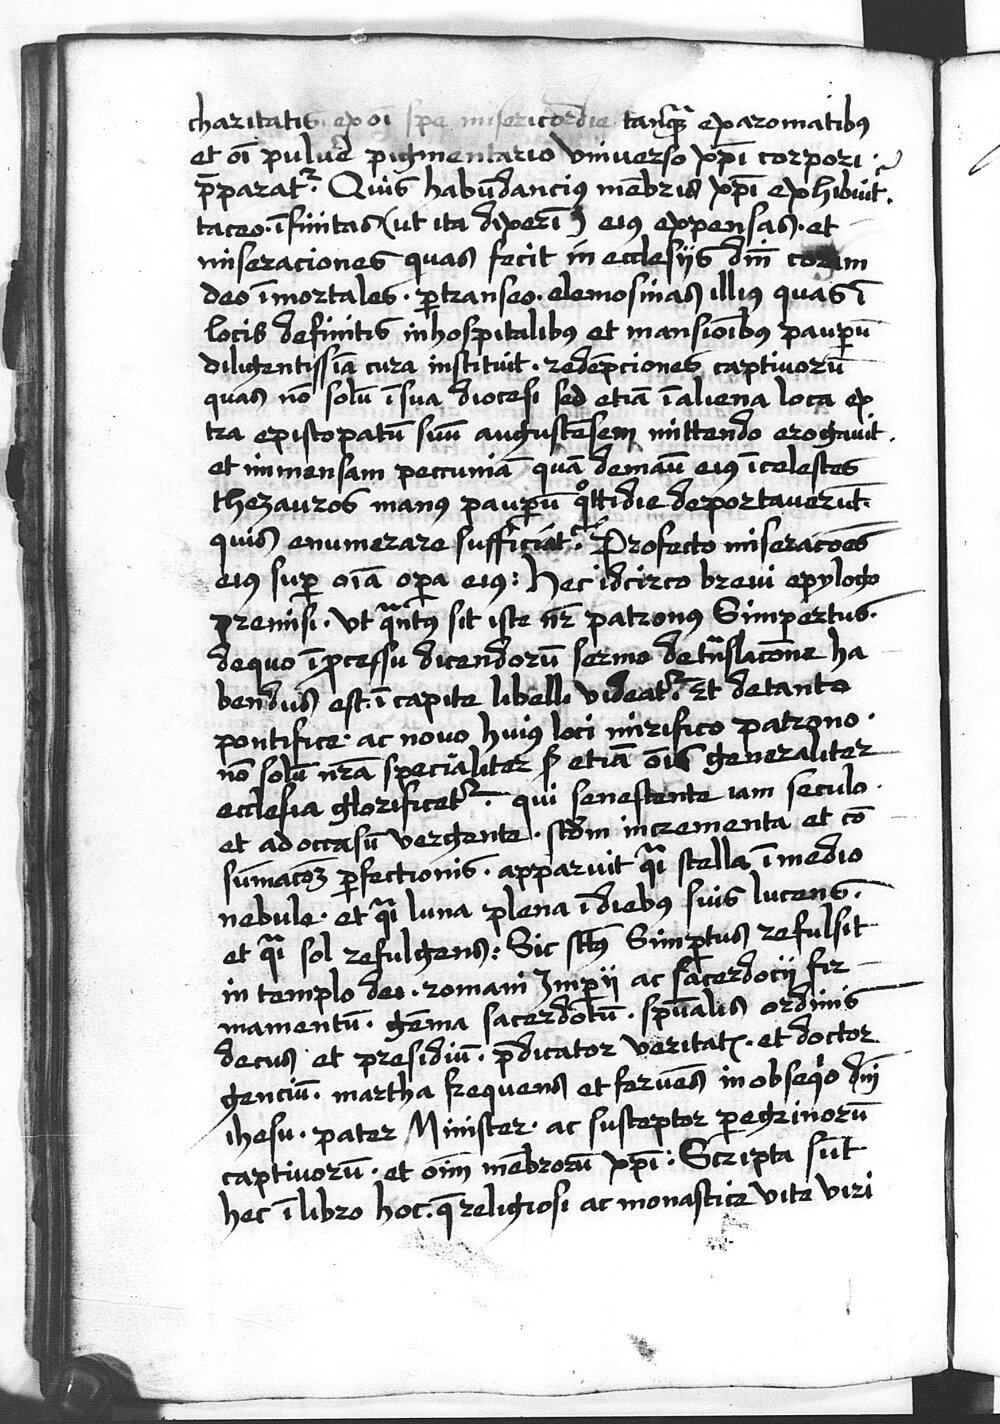 charitatis. ex oi spe misericordie tanqᷓ ex aromatibus
et oi pulue᷑e pigmentario vniuerso xp̄i corpori ·
p̄parat᷑. Quis habūdancius mēbris xp̄i exhibuit.
taceo · īfinitas (ut ita dixeri᷑) eius expensas · et
miseraciones quas fecit in ecclesijs dnī coram
deo īmortales · ꝑtranseo · elemosinas illius quas ī
locis definitis inhospitalibus et mansioībus pauꝑū
diligentissīa cura instituit · redēpciones captiuorū
quas nō solū ī sua diocesi sed etiā ī aliena loca ex
tra episcopatū suū augustēsem mittendo erogauit.
et immensam peccuniā quā de manū eius ī celestes
thezauros manus pauꝑū qͦttidie deportauerūt.
quis enumerare sufficiat᷑. Profecto miseracōes
eius suꝑ oīa oꝑa eius: Hec idcirco breui epylogo
premisi · vt qᷓntus sit iste nr̄ patronus Simpertus.
de quo ī ꝓcessu dicendorū sermo de tᷓnslacōne ha
bendus est. ī capite libelli videat᷑. Et de tanto
pontifice · ac nouo huius loci mirifico patrono ·
nō solū nr̄a specialiter sꝫ etiā oīs generaliter
ecclesia glorificet᷑. qui senescente iam seculo ·
et ad occasū vergente · scd̄m incrementa et cō
sūmacōꝫ ꝑfectionis · apparuit qᷓi stella ī medio
nebule · et qᷓi luna plena ī diebus suis lucens.
et qᷓi sol refulgens: Sic sct̄us Simꝑtus refulsit
in templo dei · romani Imꝑij ac sacerdocij fir
mamentū · gēma sacerdotū · spūalis ordinis
decus et presidiū · p̄dicator veritatꝭ · et doctor
genciū · martha frequens et feruēs in obseqͥo dnī
ihesu · pater Minister · ac susceptor ꝑegrinorū
captiuorū · et oīm mēbrorū xp̄i: Scripta sūt
hec ī libro hoc. q̄ religiosi ac monastice vite viri